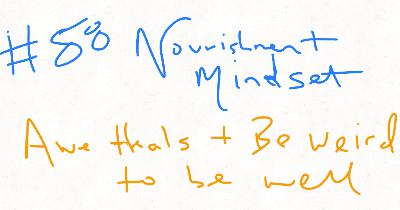 #58 Nourishment
Mindset
Awe thals + Be weird
to be well